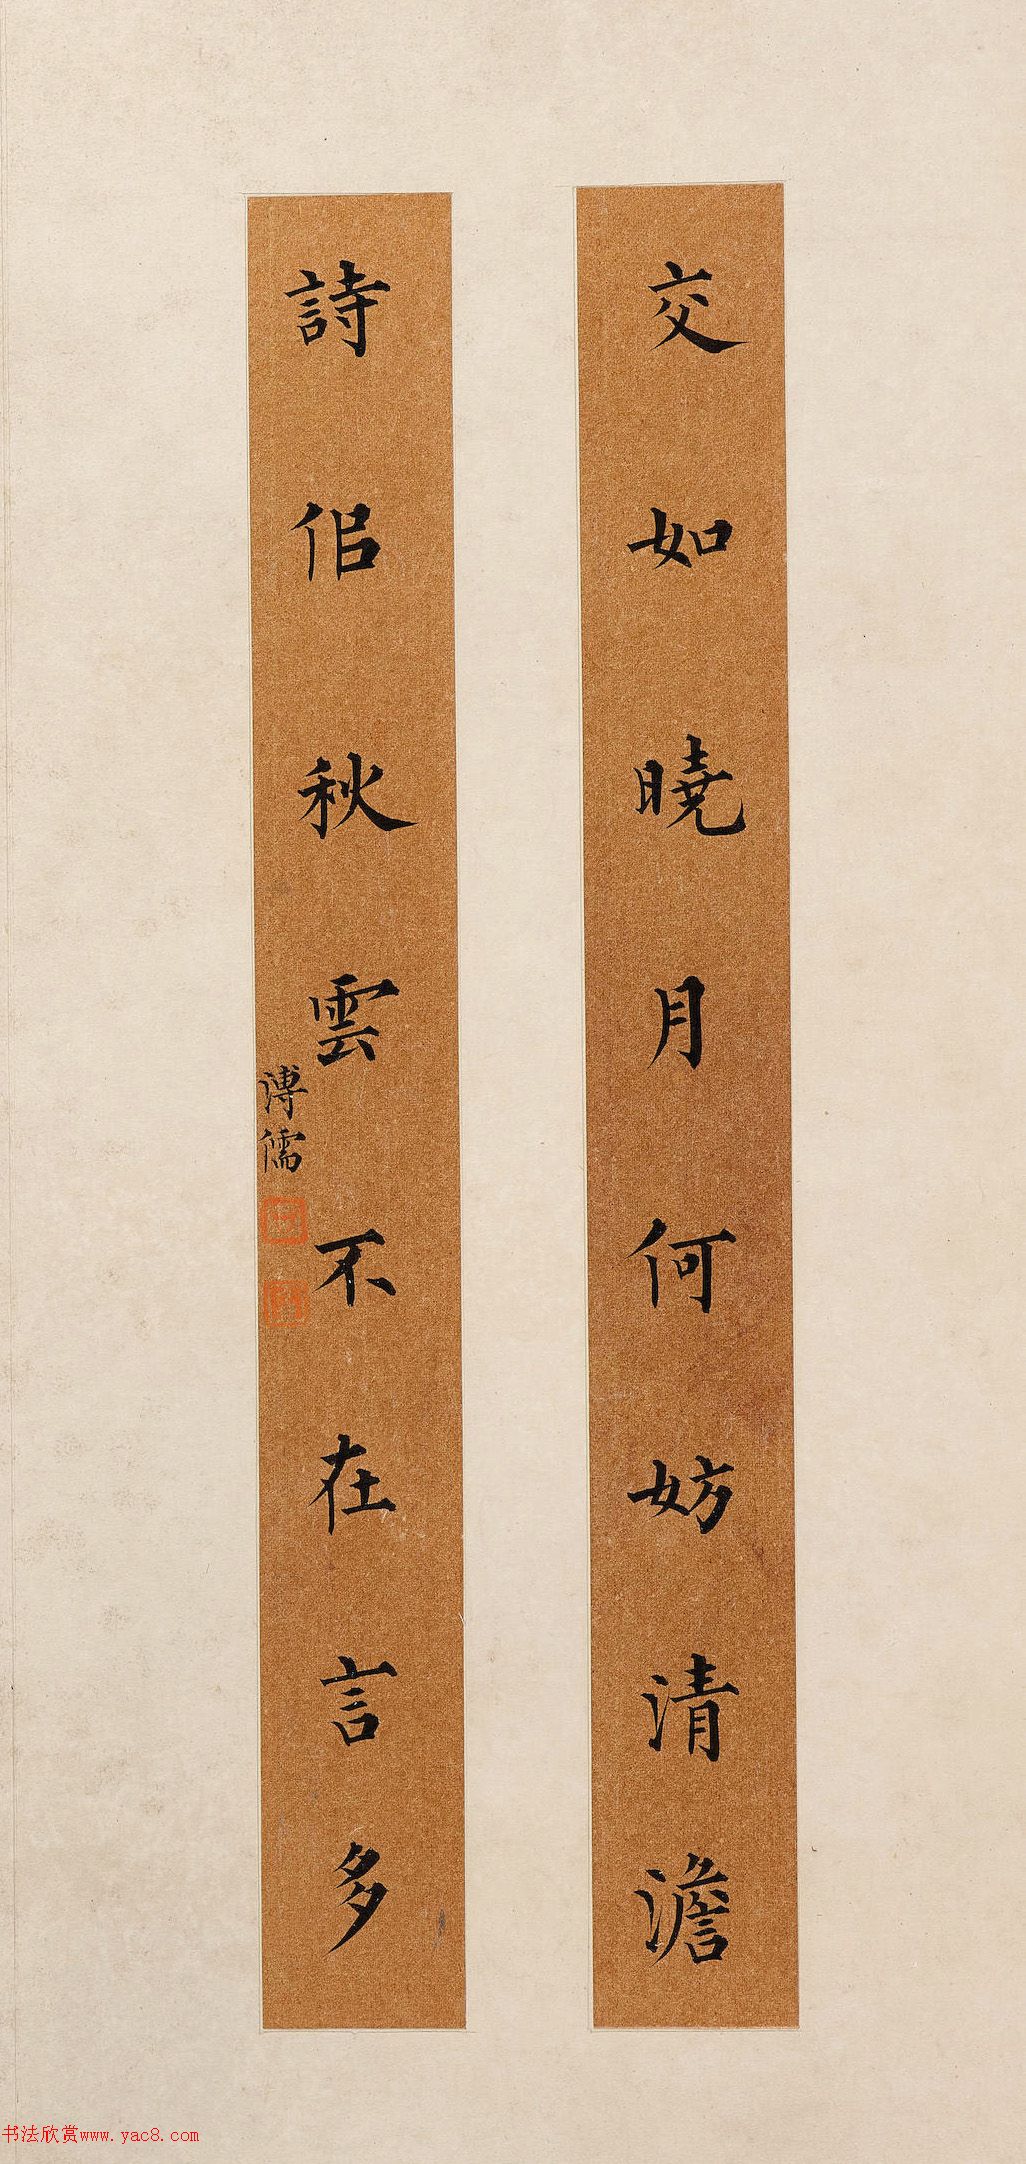 交如曉月何妨清澹
詩侣秋雲不在言多
溥儒
书法欣赏www.yac8.com